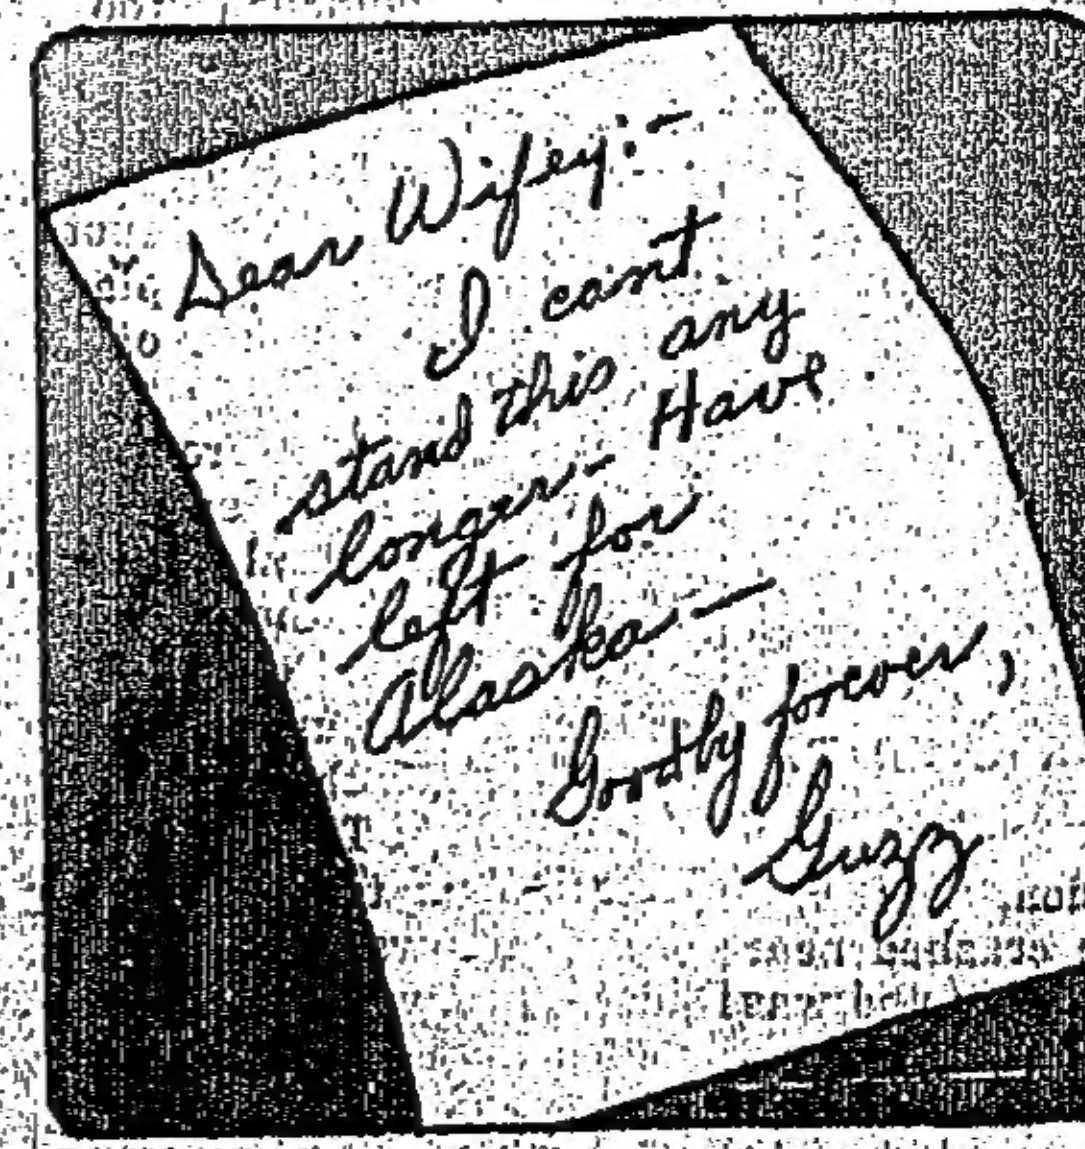 Dear Wifey:-
I can't
stand this any
longer - Have
left for
Alaska —
Goodby forever,
Guzz